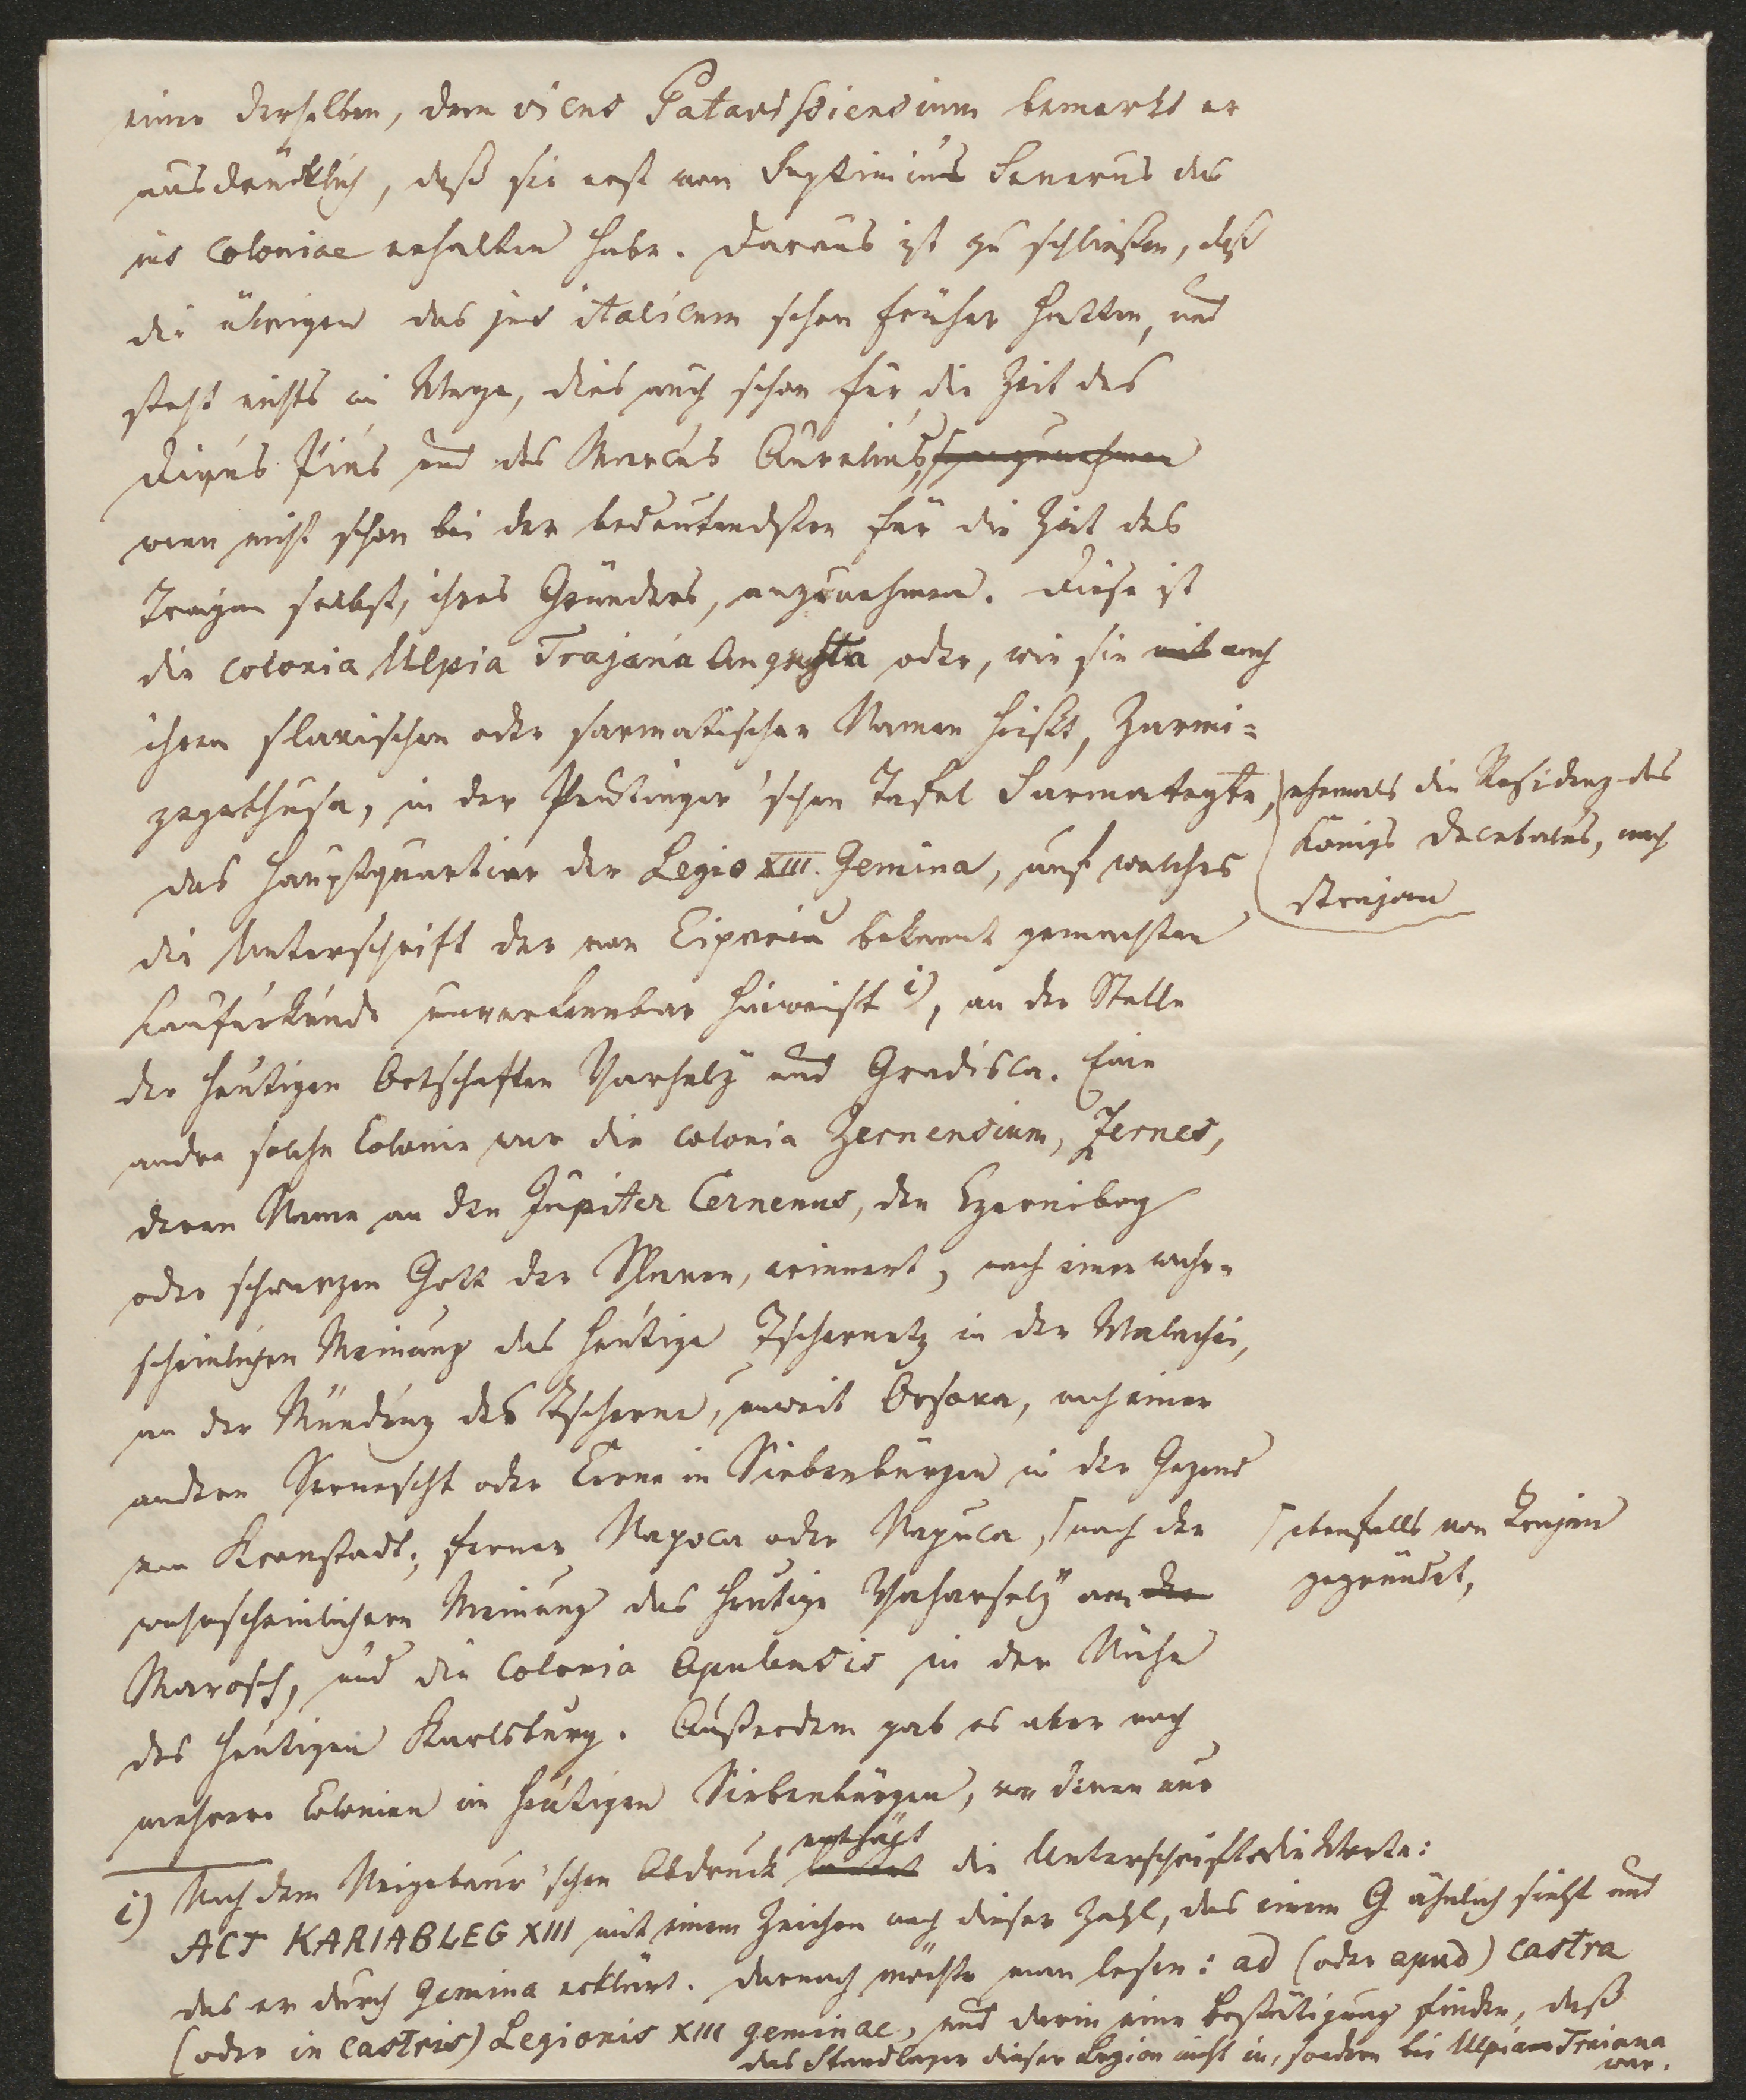 einer derselben, dem vicus Patavissiensium bemerkt er
ausdrücklich, daß sie erst von Septimius Severus das
ius coloniae erhalten habe. Daraus ist zu schließen, daß
die übrigen das jus italicum schon früher hatten, und
steht nichts im Wege, dies auch schon für die Zeit des
Divus Pius und des Marcus Aurelius,
wenn nicht schon bei der bedeutendsten für die Zeit des
Trajan selbst, ihres Gründers, anzunehmen. Diese ist
die colonia Ulpia Trajana Augusta oder, wie sie mit auch
ihrem slavischen oder sarmatischen Namen hieß, Zarmi-
zegethusa, in der Peutinger'schen Tafel Sarmategte,
ehemals die Residenz des
Königs Decebalus, nach
Trajan
das Hauptquartier der Legio XIII. Gemina, auf welches
die Unterschrift der von Cipariu bekannt gemachten
Kaufurkunde unverkennbar hinweist 1), an der Stelle
der heutigen Ortschaften Varhely und Gradisca. Eine
andre solche Colonie war die colonia Zernensium, Zernes,
deren Name an den Jupiter Cernenus, den Czernibog
oder schwarzen Gott der Slaven, erinnert, nach einer wahr-
scheinlichen Meinung das heutige Tschernetz in der Walachei,
an der Mündung des Tscherna, unweit Orsova, nach einer
andern Sernescht oder Cerna in Siebenbürgen in der Gegend
von Kronstadt; ferner Napoca oder Napuca, nach der
ebenfalls von Trajan
gegründet,
wahrscheinlichern Meinung das heutige Vaharhely am der
Marosch, und die Colonia Apulensis in der Nähe
des heutigen Karlsburg. Außerdem gab es aber noch
mehrere Colonien im heutigen Siebenbürgen, von denen nur
1) Nach dem Neigebaur'schen Abdruck lautet enthält die Unterschrift die Worte:
ACT KARIABLEG XIII mit einem Zeichen nach dieser Zahl, das einem G ähnlich sieht und
das er durch Gemina erklärt. Darnach möchte man lesen: ad (oder apud) castra
(oder in castris) Legionis XIII geminae, und darin eine Bestätigung finden, daß
das Standlager dieser Legion nicht in, sondern bei Ulpia Traiana
war.